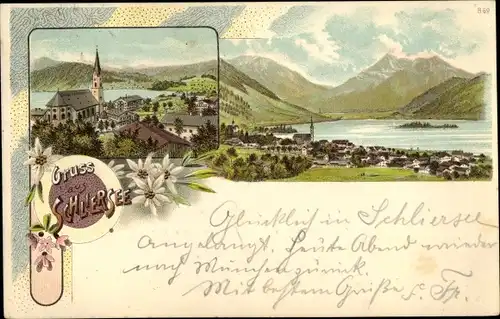 848
Gruss
aus
SCHLIERSEE
Glücklich in Schliersee
angelangt. Heute Abend wieder
nach München zurück.
Mit bestem Grüße